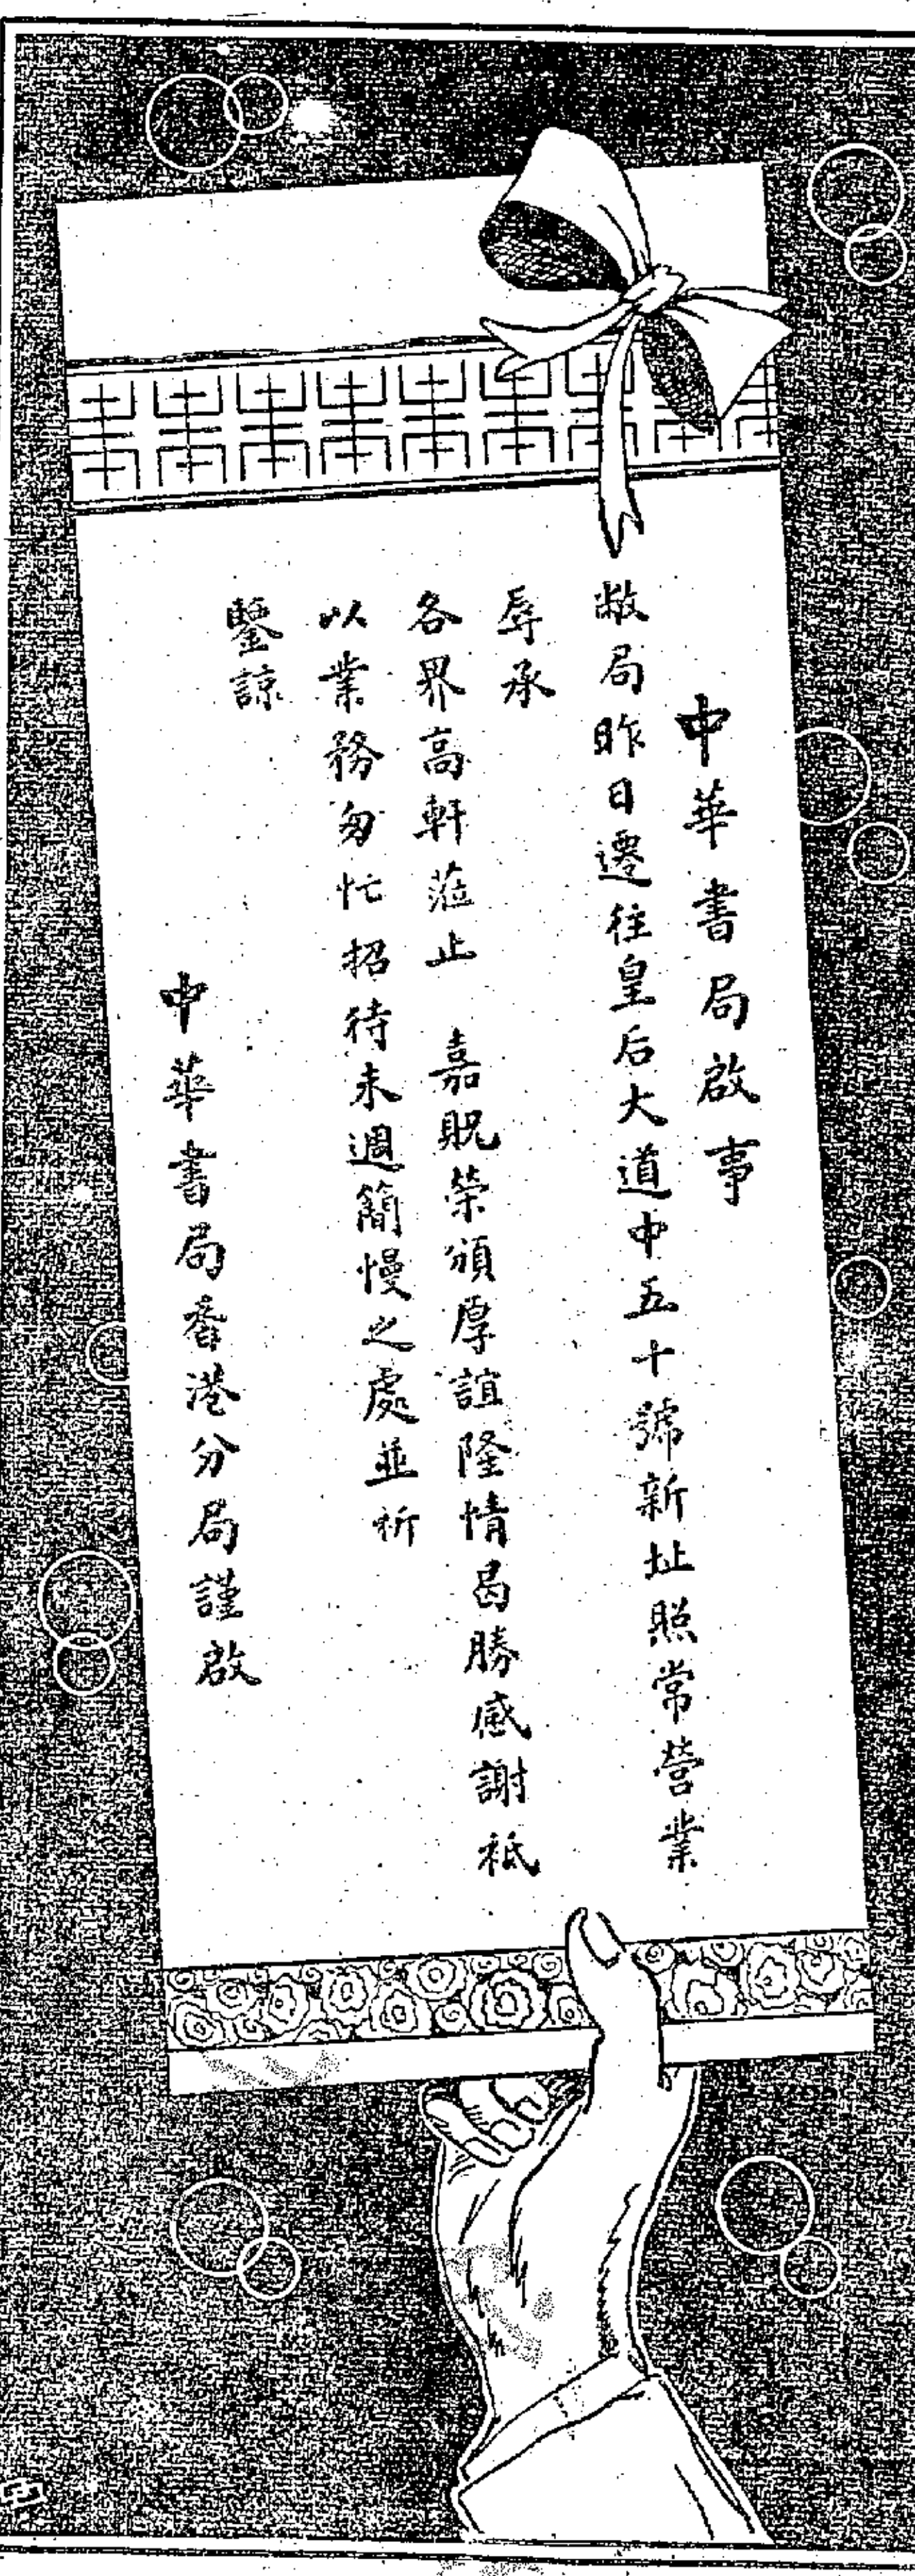 中華書局啟事
敝局昨日遷往皇后大道中五十號新址照常營業
辱承
各界高軒蒞止　嘉貺榮頒厚誼隆情曷勝感謝祗
以業務匆忙招待未週簡慢之處並祈
鑒諒
中華書局香港分局謹啟